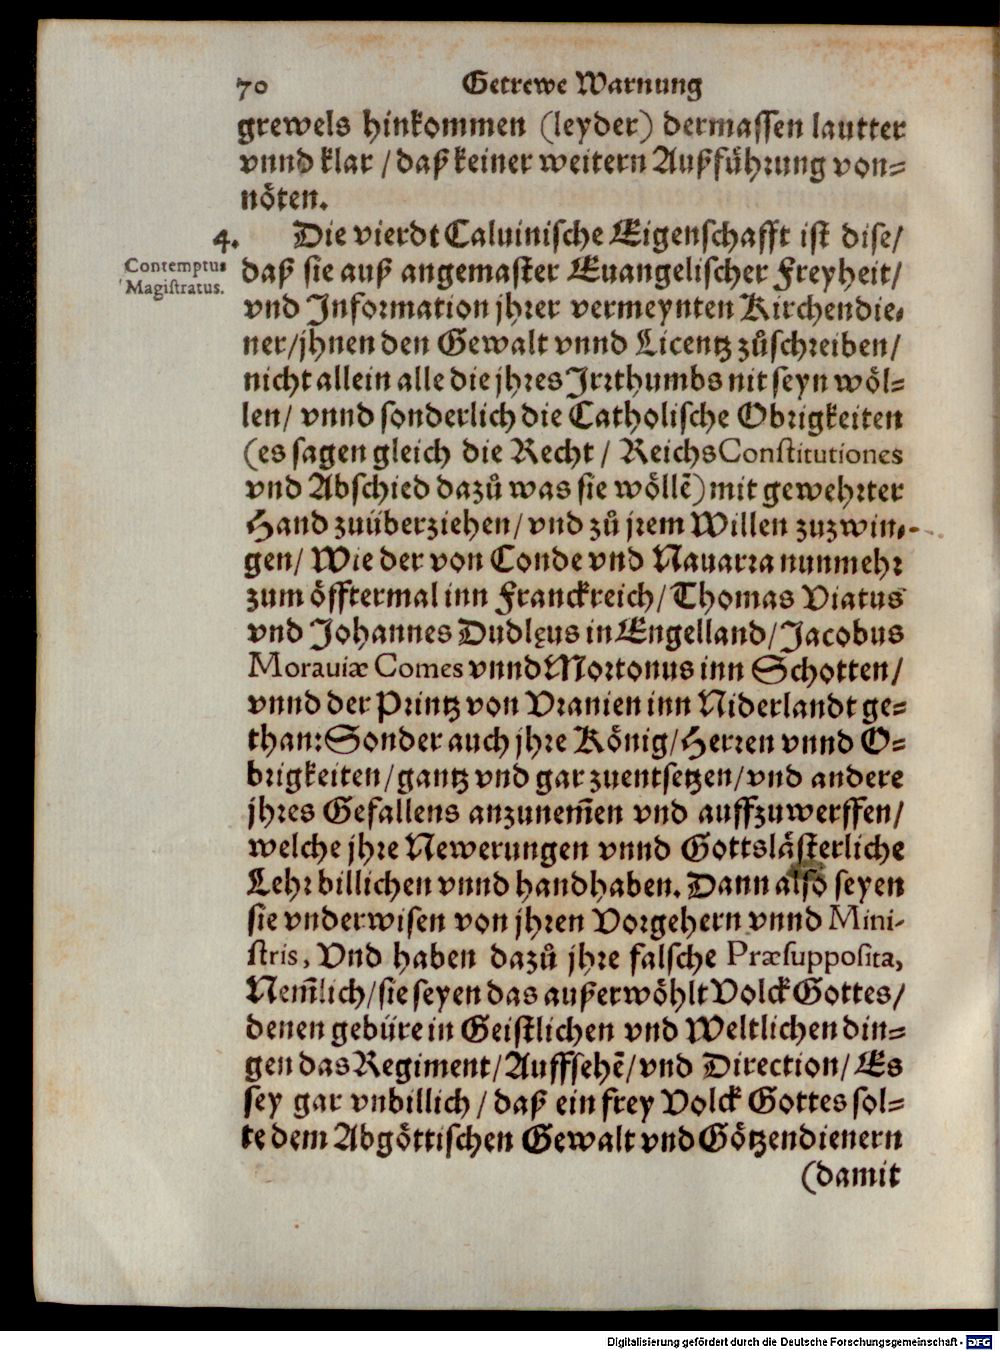 70 Getrewe Warnung
grewels hinkommen (leyder) dermassen lautter
vnnd klar / daß keiner weitern Außführung von-
nöten.
4. Die vierdt Caluinische Eigenschafft ist dise/
Contemptus
Magistratus.
daß sie auß angemaster Euangelischer Freyheit/
vnd Information jhrer vermeynten Kirchendie-
ner/jhnen den Gewalt vnnd Licentz zůschreiben/
nicht allein alle die jhres Irrthumbs nit seyn wöl-
len/ vnnd sonderlich die Catholische Obrigkeiten
(es sagen gleich die Recht / Reichs Constitutiones
vnd Abschied dazů was sie wöllē) mit gewehrter
Hand zuüberziehen/ vnd zů jrem Willen zuzwin-
gen/ Wie der von Conde vnd Nauarra nunmehr
zum öfftermal inn Franckreich/ Thomas Viatus
vnd Johannes Dudlęus in Engelland/ Jacobus
Morauiæ Comes vnnd Mortonus inn Schotten/
vnnd der Printz von Vranien inn Niderlandt ge-
than: Sonder auch jhre König/ Herren vnnd O-
brigkeiten/ gantz vnd gar zuentsetzen/ vnd andere
jhres Gefallens anzunem̃en vnd auffzuwerffen/
welche jhre Newerungen vnnd Gottslästerliche
Lehr billichen vnnd handhaben. Dann also seyen
sie vnderwisen von jhren Vorgehern vnnd Mini-
stris, Vnd haben dazů jhre falsche Præsupposita,
Nem̃lich/ sie seyen das außerwöhlt Volck Gottes/
denen gebüre in Geistlichen vnd Weltlichen din-
gen das Regiment/ Auffsehē/ vnd Direction/ Es
sey gar vnbillich / daß ein frey Volck Gottes sol-
te dem Abgöttischen Gewalt vnd Götzendienern
(damit
Digitalisierung gefördert durch die Deutsche Forschungsgemeinschaft - DFG